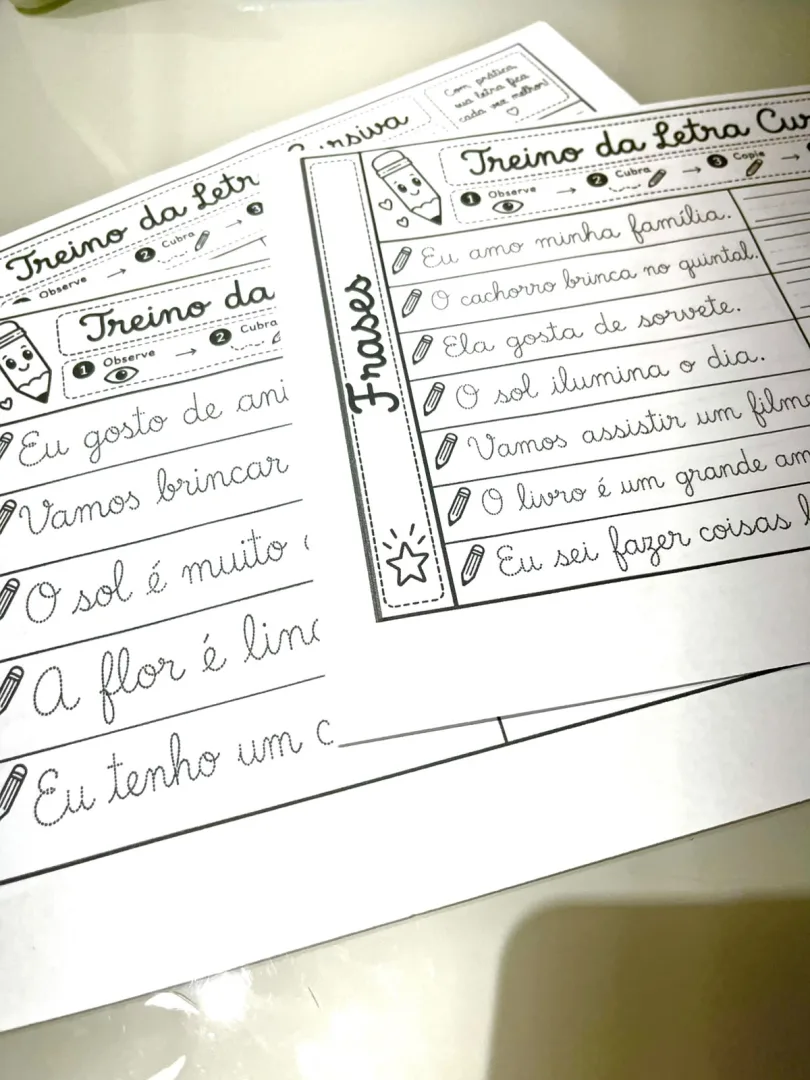 Com prática,
sua letra fica
cada vez melhor!
Treino da Letr
Cursiva
Observe
2 Cubra
3
Treino da
1 Observe
2 Cubra
Eu gosto de ani
Vamos brincar
O sol é muito
A flor é lind
Eu tenho um c
Treino da Letra Cur
1 Observe
2 Cubra
3 Copie
Frases
Eu amo minha família.
O cachorro brinca no quintal.
Ela gosta de sorvete.
O sol ilumina o dia.
Vamos assistir um filme
O livro é um grande am
Eu sei fazer coisas l